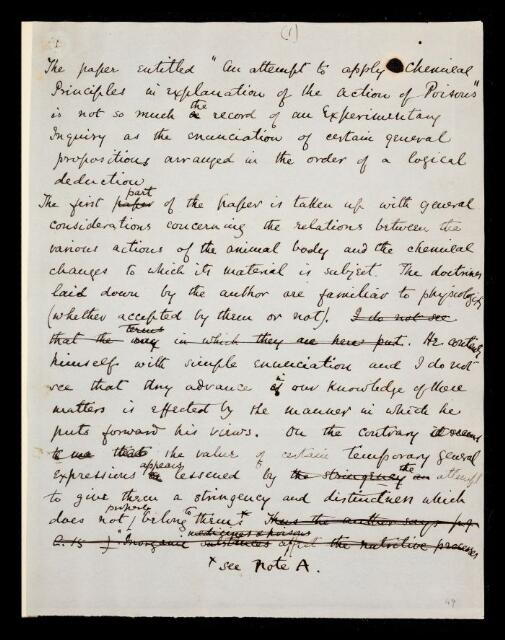 (1)
The paper entitled "An attempt to apply Chemical
Principles in explanation of the action of Poisons"
is not so much the record of an Experimentary
Inquiry as the enunciation of certain general
propositions arranged in the order of a logical
deduction
part
The first paper of the paper is taken up with general
considerations concerning the relations between the
various actions of the animal body and the chemical
changes to which its material is subject. The doctrines
laid down by the author are familiar to physiologists
(whether accepted by them or not). I do not see
terms
that the way in which they are here put. He contents
himself with simple enunciation and I do not
see that any advance in our knowledge of these
matters is effected by the manner in which he
puts forward his views. On the contrary it seems
to me that the value of certain temporary general
appears the
expressions lessened by the stringency an attempt
to give them a stringency and distinctness which
properly to
does not belong them + Thus the author says
medicines & poisons
p. 15 "Inorganic substances affect the nutritive processes
+ see note A.
49